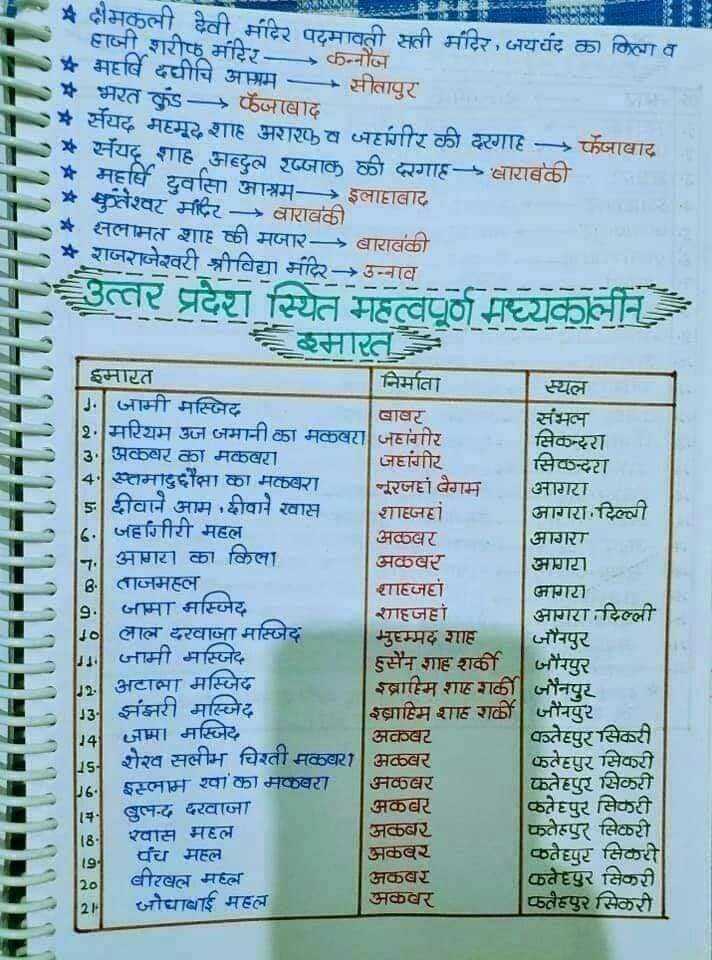 ★ क्षेमकली देवी मंदिर पदमावती सती मंदिर, जयचंद का किला व
हाजी शरीफ मंदिर → कन्नौज
★ महर्षि दधीचि आश्रम → सीतापुर
★ भरत कुंड → फैजाबाद
★ सैयद महमूद शाह अशरफ व जहांगीर की दरगाह → फैजाबाद
★ सैयद शाह अब्दुल रज्जाक की दरगाह → बाराबंकी
★ महर्षि दुर्वासा आश्रम → इलाहाबाद
★ कुंतेश्वर मंदिर → बाराबंकी
★ सलामत शाह की मजार → बाराबंकी
★ राजराजेश्वरी श्रीविद्या मंदिर → उन्नाव
उत्तर प्रदेश स्थित महत्वपूर्ण मध्यकालीन
इमारत
इमारत निर्माता स्थल
1. जामी मस्जिद बाबर संभल
2. मरियम उज जमानी का मकबरा जहांगीर सिकन्दरा
3. अकबर का मकबरा जहांगीर सिकन्दरा
4. एत्तमादुद्दौला का मकबरा नूरजहां बेगम आगरा
5. दीवाने आम, दीवाने खास शाहजहां आगरा, दिल्ली
6. जहाँगीरी महल अकबर आगरा
7. आगरा का किला अकबर आगरा
8. ताजमहल शाहजहां आगरा
9. जामा मस्जिद शाहजहां आगरा, दिल्ली
10 लाल दरवाजा मस्जिद मुहम्मद शाह जौनपुर
11. जामी मस्जिद हुसैन शाह शर्की जौनपुर
12. अटाला मस्जिद इब्राहिम शाह शर्की जौनपुर
13. झंझरी मस्जिद इब्राहिम शाह शर्की जौनपुर
14 जामा मस्जिद अकबर फतेहपुर सिकरी
15- शेख सलीम चिश्ती मकबरा अकबर फतेहपुर सिकरी
16. इस्लाम खां का मकबरा अकबर फतेहपुर सिकरी
17. बुलन्द दरवाजा अकबर फतेहपुर सिकरी
18. खास महल अकबर फतेहपुर सिकरी
19. पंच महल अकबर फतेहपुर सिकरी
20 बीरबल महल अकबर फतेहपुर सिकरी
21. जोधाबाई महल अकबर फतेहपुर सिकरी